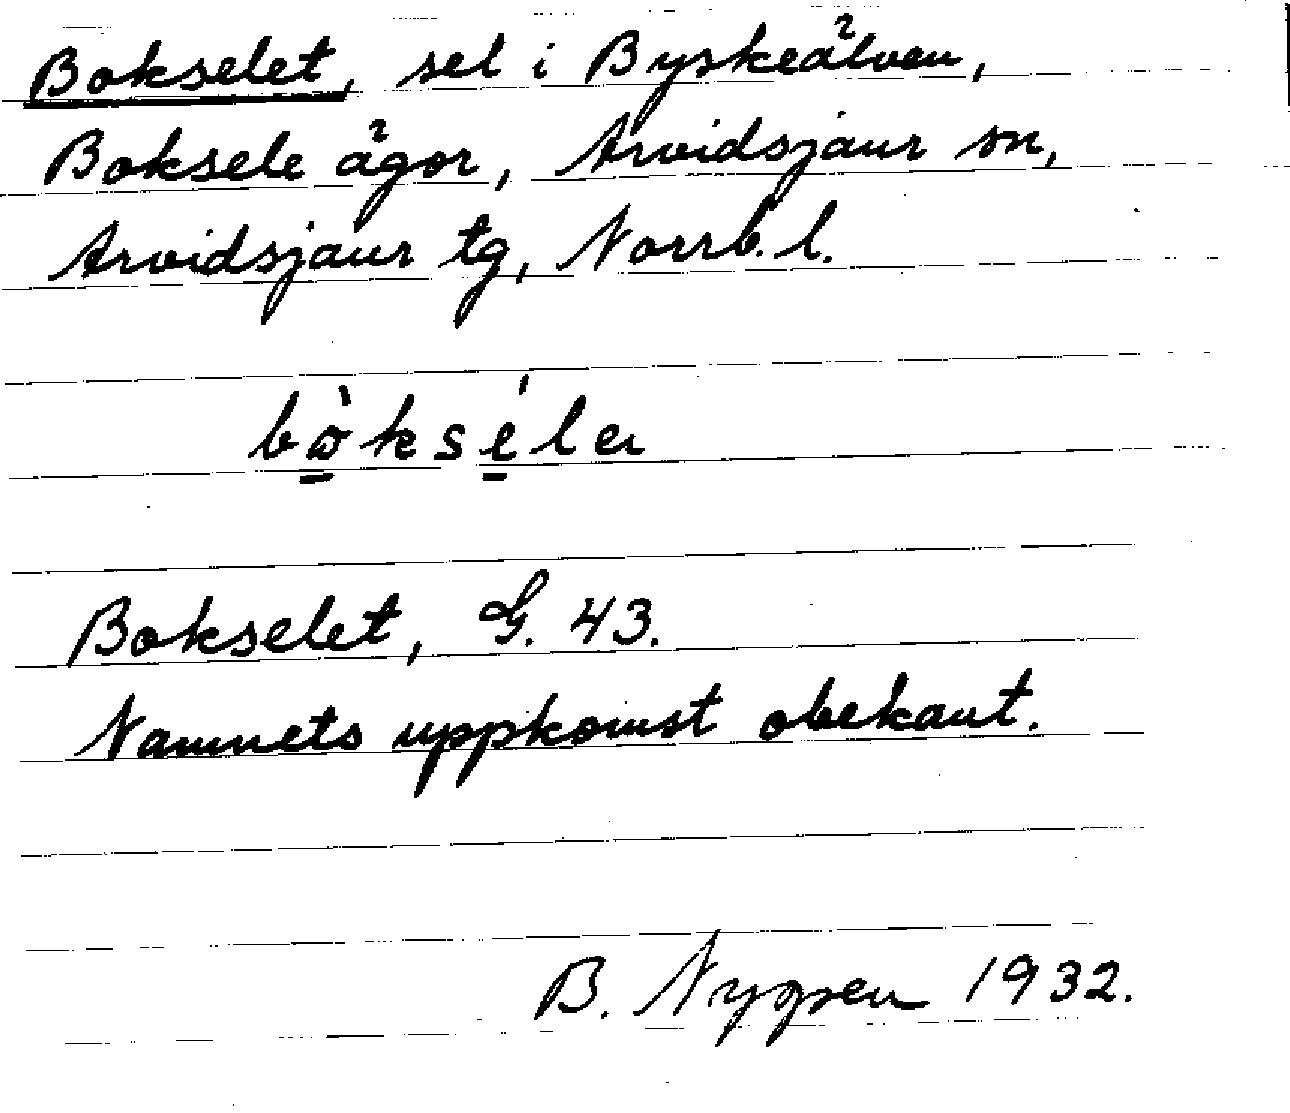 Bokselet, sel i Byskeälven,
Boksele ägor, Arvidsjaur sn,
Arvidsjaur tg, Norrb. l.
bòkséleɪ
Bokselet, G. 43.
Namnets uppkomst obekant.
B. Nygren 1932.